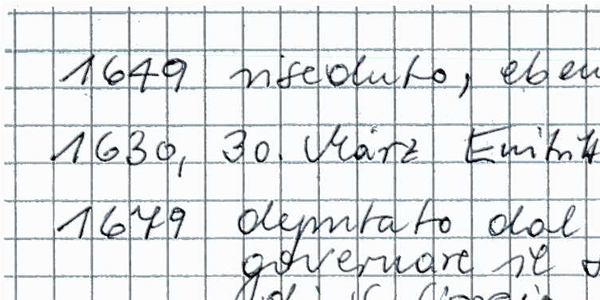 1649 riseduto, eben
1630, 30. März Eintritt
1679 deputato dal
governare il
di